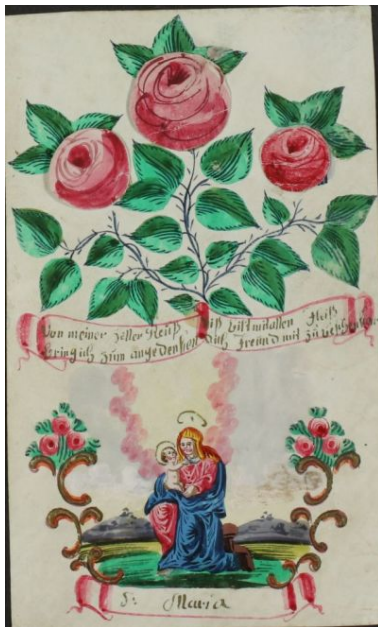 Von meiner zeller Reiß diß bilt mit allen fleiß
bring ich zum angedenken dich freund mit zu
S: Maria